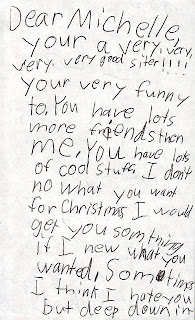 Dear Michelle,
your a very, very,
very, very good siter!!!!
your very funny
to. You have lots
more friends then
me. You have lots
of cool stuff. I don't
no what you want
for Christmas I would
get you somthing
if I new what you
wanted, Somtings
I think I hate you
but deep down in